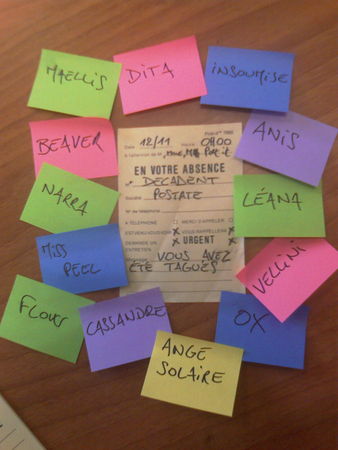 MAELLIS
DITA
INSOUMISE
BEAVER
ANIS
NARRA
LÉANA
MISS
PEEL
VELLINI
FLOUS
CASSANDRE
OX
ANGE
SOLAIRE
Date 12/11 Heure 0H00
A l'attention de M., Mme, Mlle Post-it
EN VOTRE ABSENCE
M DECADENT
Société POSTATE
N° de téléphone
A TELEPHONE MERCI D'APPELER
EST VENU VOUS VOIR X VOUS RAPPELLERA X
DEMANDE UN
ENTRETIEN X URGENT X
Message VOUS AVEZ
ÉTÉ TAGUÉS